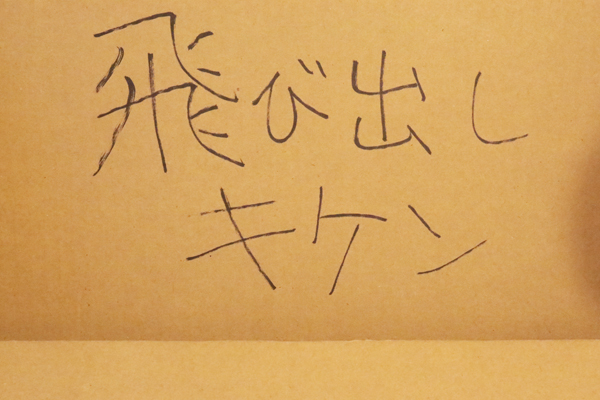 飛び出し
キケン